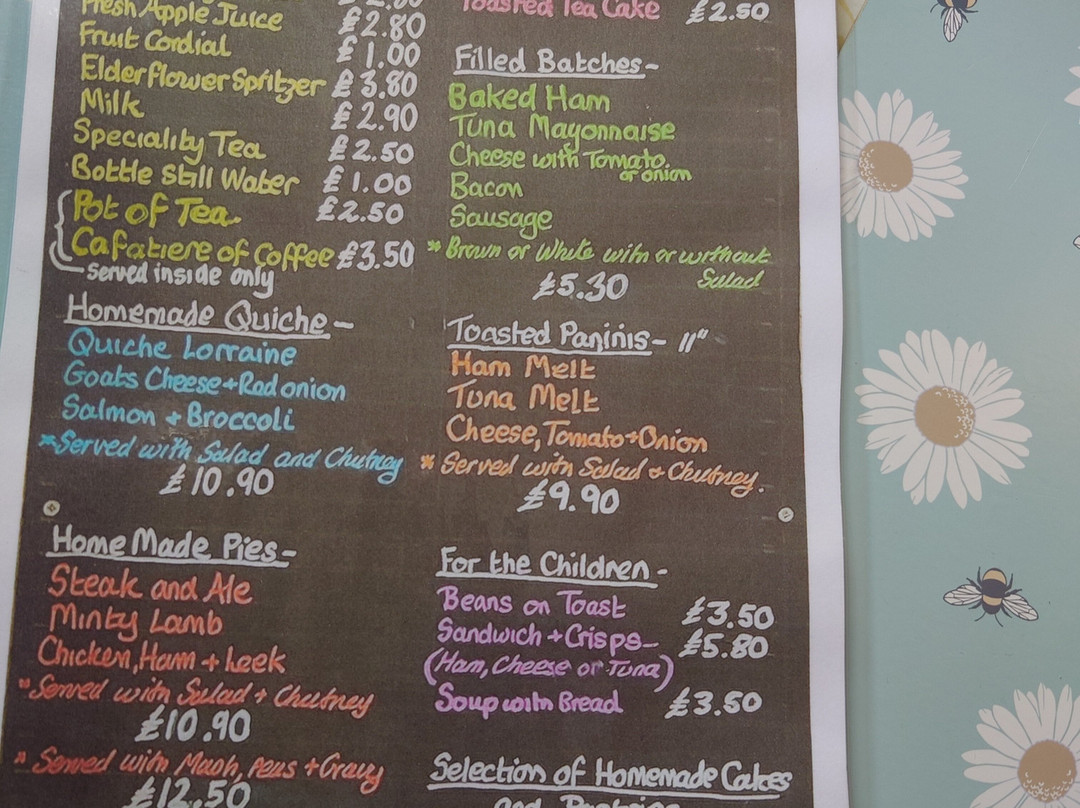 Fresh Apple Juice £2.80
Fruit Cordial £1.00
Elderflower Spritzer £3.80
Milk £2.90
Speciality Tea £2.50
Bottle Still Water £1.00
Pot of Tea £2.50
Cafatiere of Coffee £3.50
served inside only
Homemade Quiche -
Quiche Lorraine
Goats Cheese + Red onion
Salmon + Broccoli
*Served with Salad and Chutney
£10.90
Home Made Pies -
Steak and Ale
Minty Lamb
Chicken, Ham + Leek
*Served with Salad + Chutney
£10.90
* Served with Mash, Peas + Gravy
£12.50
Toasted Tea Cake £2.50
Filled Batches -
Baked Ham
Tuna Mayonnaise
Cheese with Tomato
or onion
Bacon
Sausage
* Brown or White with or without
Salad
£5.30
Toasted Paninis - 11"
Ham Melt
Tuna Melt
Cheese, Tomato + Onion
* Served with Salad + Chutney.
£9.90
For the Children -
Beans on Toast £3.50
Sandwich + Crisps - £5.80
(Ham, Cheese or Tuna)
Soup with Bread £3.50
Selection of Homemade Cakes
and Pastries